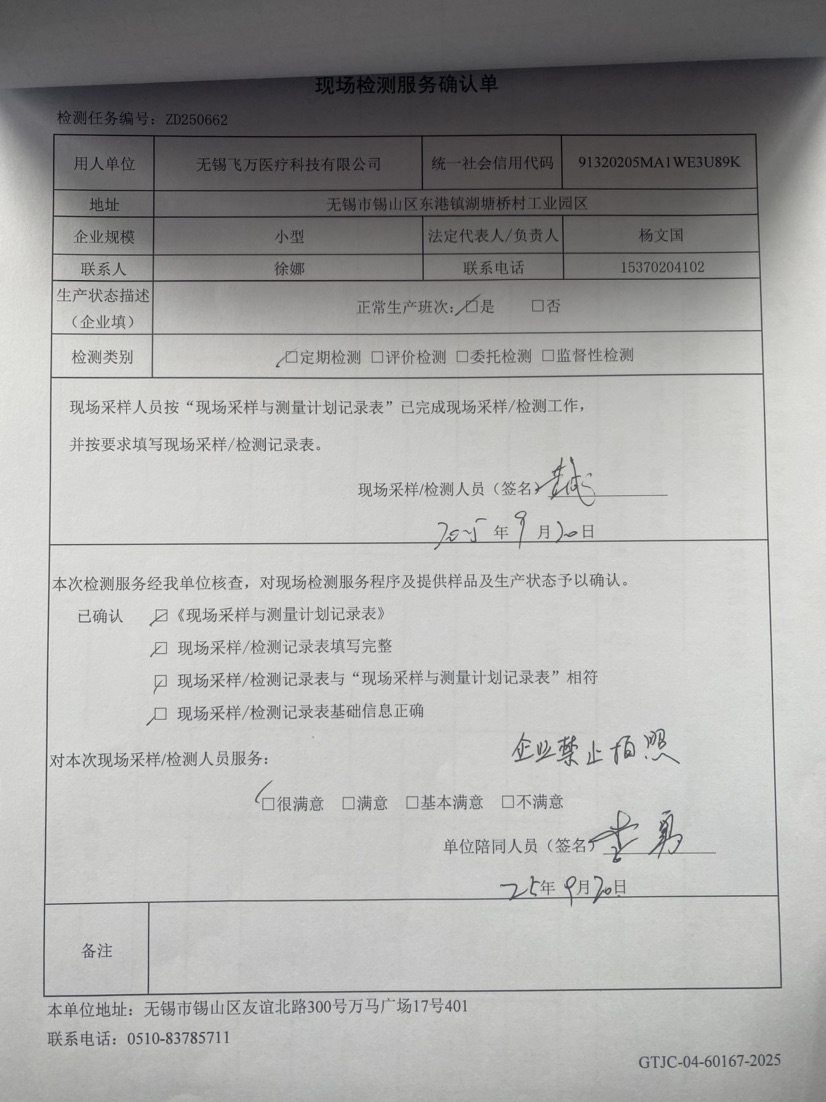 现场检测服务确认单
检测任务编号：ZD250662
用人单位 无锡飞万医疗科技有限公司 统一社会信用代码 91320205MA1WE3U89K
地址 无锡市锡山区东港镇湖塘桥村工业园区
企业规模 小型 法定代表人/负责人 杨文国
联系人 徐娜 联系电话 15370204102
生产状态描述（企业填） 正常生产班次：☑是 □否
检测类别 ☑定期检测 □评价检测 □委托检测 □监督性检测
现场采样人员按“现场采样与测量计划记录表”已完成现场采样/检测工作，
并按要求填写现场采样/检测记录表。
现场采样/检测人员（签名）
2025年9月20日
本次检测服务经我单位核查，对现场检测服务程序及提供样品及生产状态予以确认。
已确认 ☑《现场采样与测量计划记录表》
☑ 现场采样/检测记录表填写完整
☑ 现场采样/检测记录表与“现场采样与测量计划记录表”相符
☑ 现场采样/检测记录表基础信息正确
企业禁止拍照
对本次现场采样/检测人员服务：
☑很满意 □满意 □基本满意 □不满意
单位陪同人员（签名）
25年9月20日
备注
本单位地址：无锡市锡山区友谊北路300号万马广场17号401
联系电话：0510-83785711
GTJC-04-60167-2025